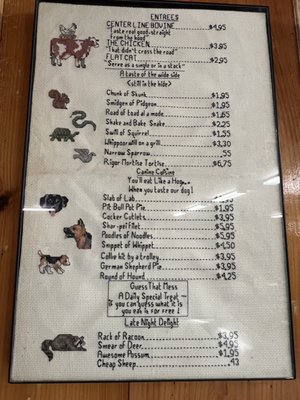 ENTREES
CENTER LINE BOVINE $4.95
"Taste real good-straight
from the hood"
THE CHICKEN $3.95
"That didn't cross the road"
FLAT CAT $2.95
"Serve as a single or in a stack"
A taste of the wide side
<still in the hide>
Chunk of Skunk $1.95
Smidgen of Pidgeon $1.95
Road of toad al a mode $1.65
Shake and Bake Snake $2.25
Swill of Squirrel $1.55
Whippoorwill on a grill $3.30
Narrow Sparrow .55
Rigor Mortise Tortise $6.75
Canine Cuisine
You'll Eat Like a Hog...
When you taste our dog!
Slab of Lab $3.95
Pit Bull Pot Pie $1.95
Cocker Cutlets $3.95
Shar-pei Filet $5.95
Poodles of Noodles $3.95
Snippet of Whippet $4.50
Collie hit by a trolley $3.95
German Shepherd Pie $3.95
Round of Hound $4.25
Guess That Mess
A Daily Special Treat -
if you can guess what it is
you eat it for free!
Late Night Delight
Rack of Racoon $3.95
Smear of Deer $4.95
Awesome Possum $1.95
Cheap Sheep .43